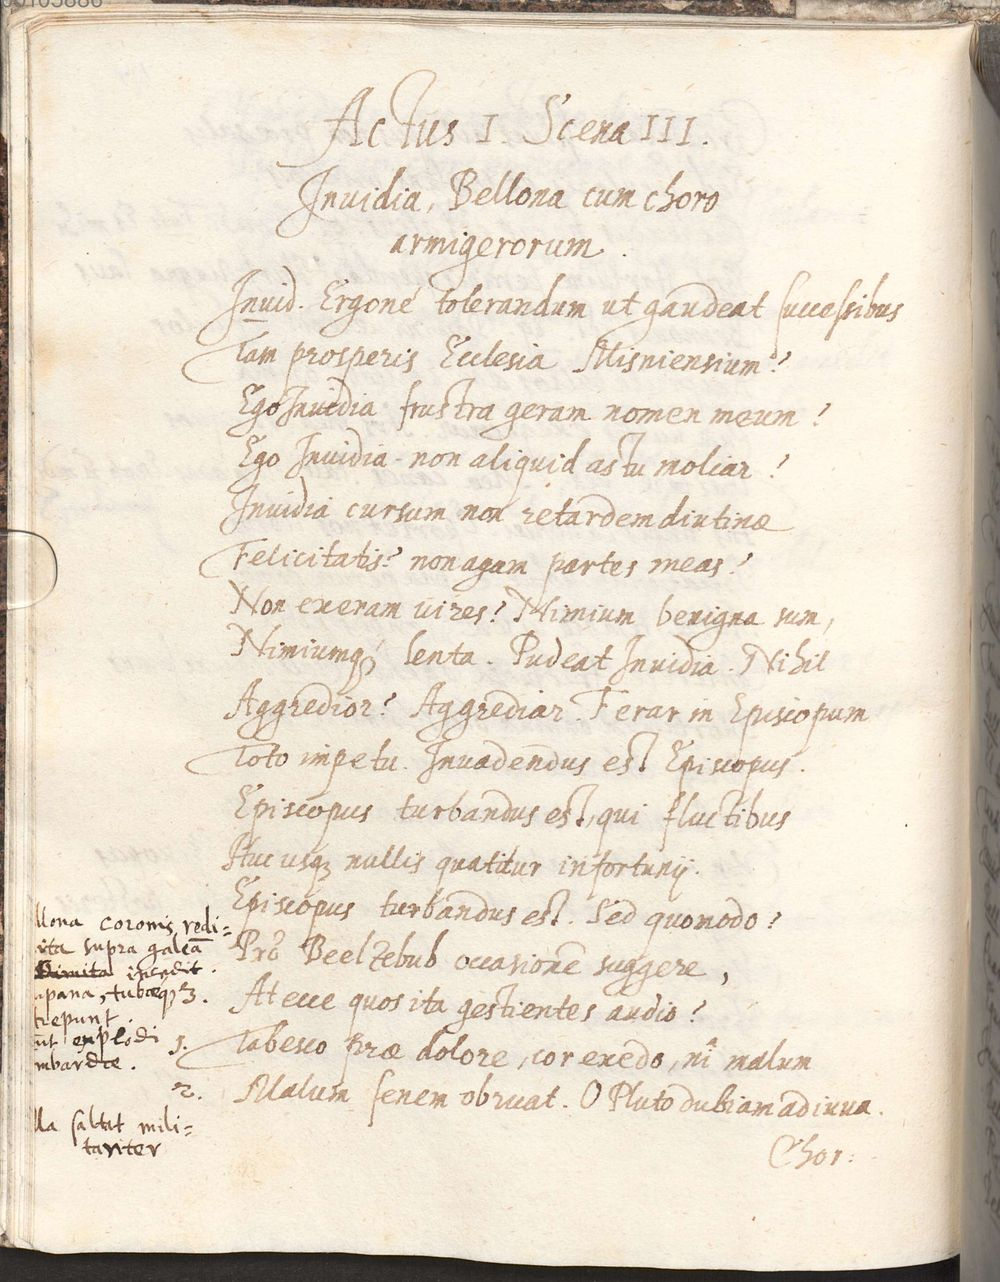 Actus I. Scena III.
Inuidia, Bellona cum choro
armigerorum.
Inuid. Ergoné tolerandum ut gaudeat successibus
Tam prosperis Ecclesia Misniensium?
Ego Inuidia frustra geram nomen meum?
Ego Inuidia non aliquid astu moliar?
Inuidia cursum non retardem diutinæ
Felicitatis? non agam partes meas?
Non exeram uires? Nimium benigna sum,
Nimiumq; lenta. Pudeat Inuidia. Nihil
Aggredior? Aggrediar. Ferar in Episcopum
Toto impetu. Inuadendus est Episcopus.
Episcopus turbandus est, qui fluctibus
Huc usq; nullis quatitur infortunij.
Episcopus turbandus est. Sed quomodo?
Prô Beelzebub occasionē suggere,
At ecce quos ita gestientes audio?
1. Tabesco præ dolore, cor exedo, nî malum
2. Malum senem obruat. O Pluto dubiam adiuua.
Chor:
llona coronis redi-
ita supra galeā
incedit.
mpana, tubæq; 3.
trepunt.
unt explodi
mbardæ.
lla saltat mili-
tariter